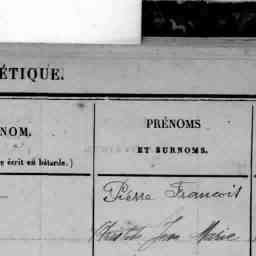 ÉTIQUE.
NOM.
PRÉNOMS
ET SURNOMS.
e écrit en bâtarde.)
Pierre Francois
Jean Marie